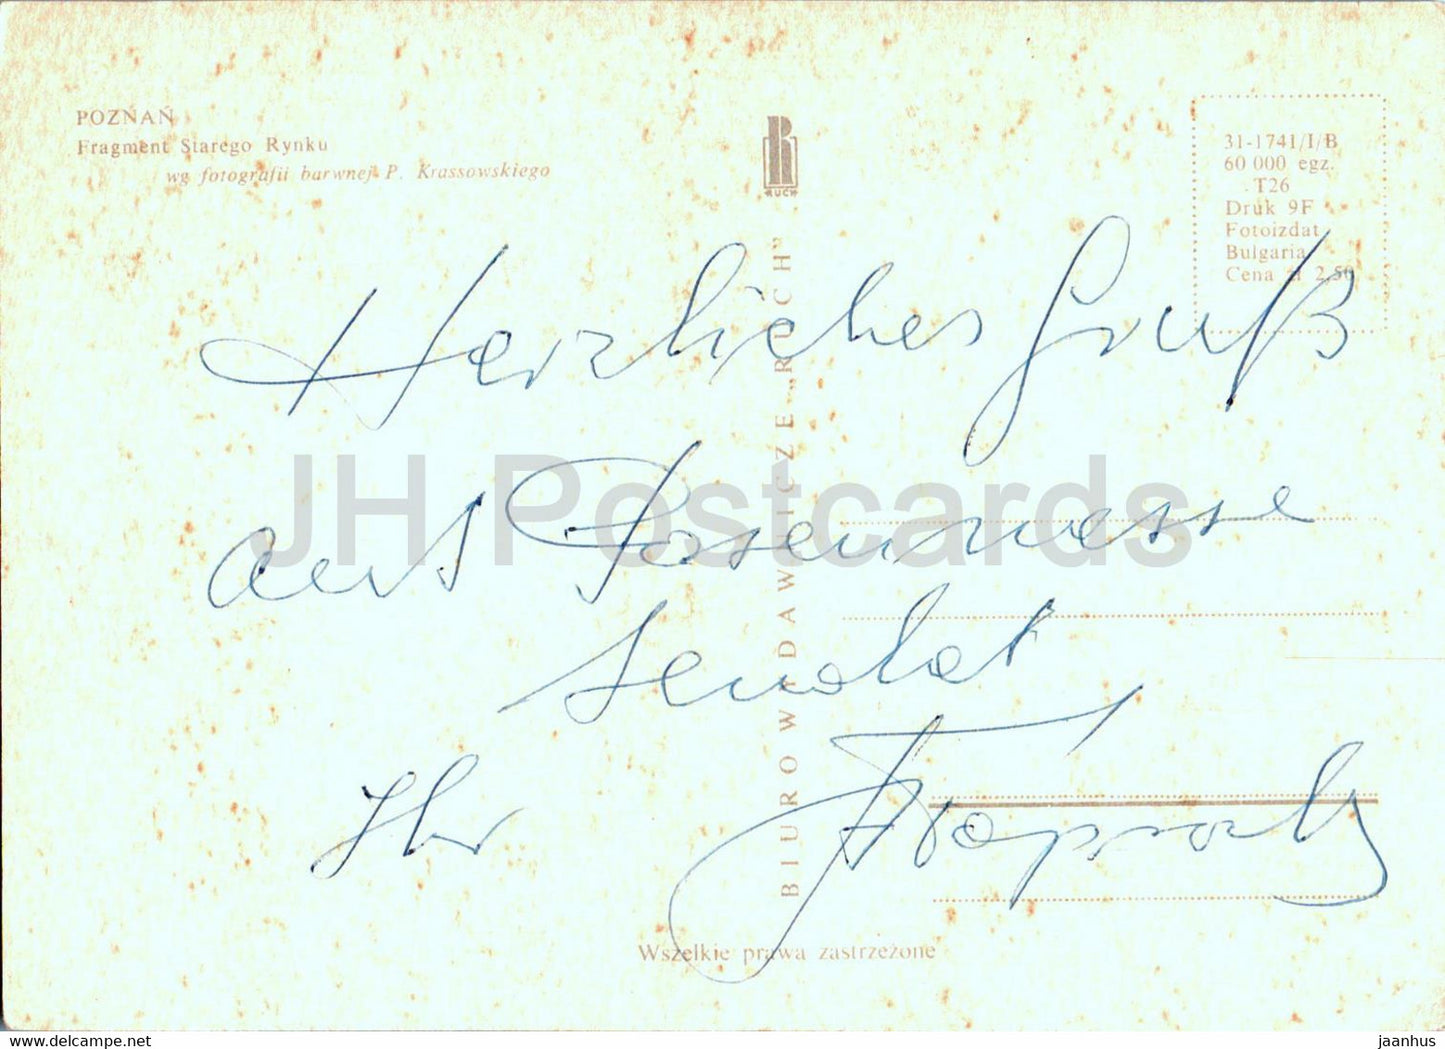 POZNAŃ
Fragment Starego Rynku
wg fotografii barwnej P. Krassowskiego
RUCH
31-1741/I/B
60 000 egz.
T26
Druk 9F
Fotoizdat
Bulgaria
Cena zł 2,50
BIURO WYDAWNICZE „RUCH"
Herzliches Gruß
aus Posenmesse
sendet
Ihr
Wszelkie prawa zastrzeżone
JH Postcards
hipstamp.com
jaanhus